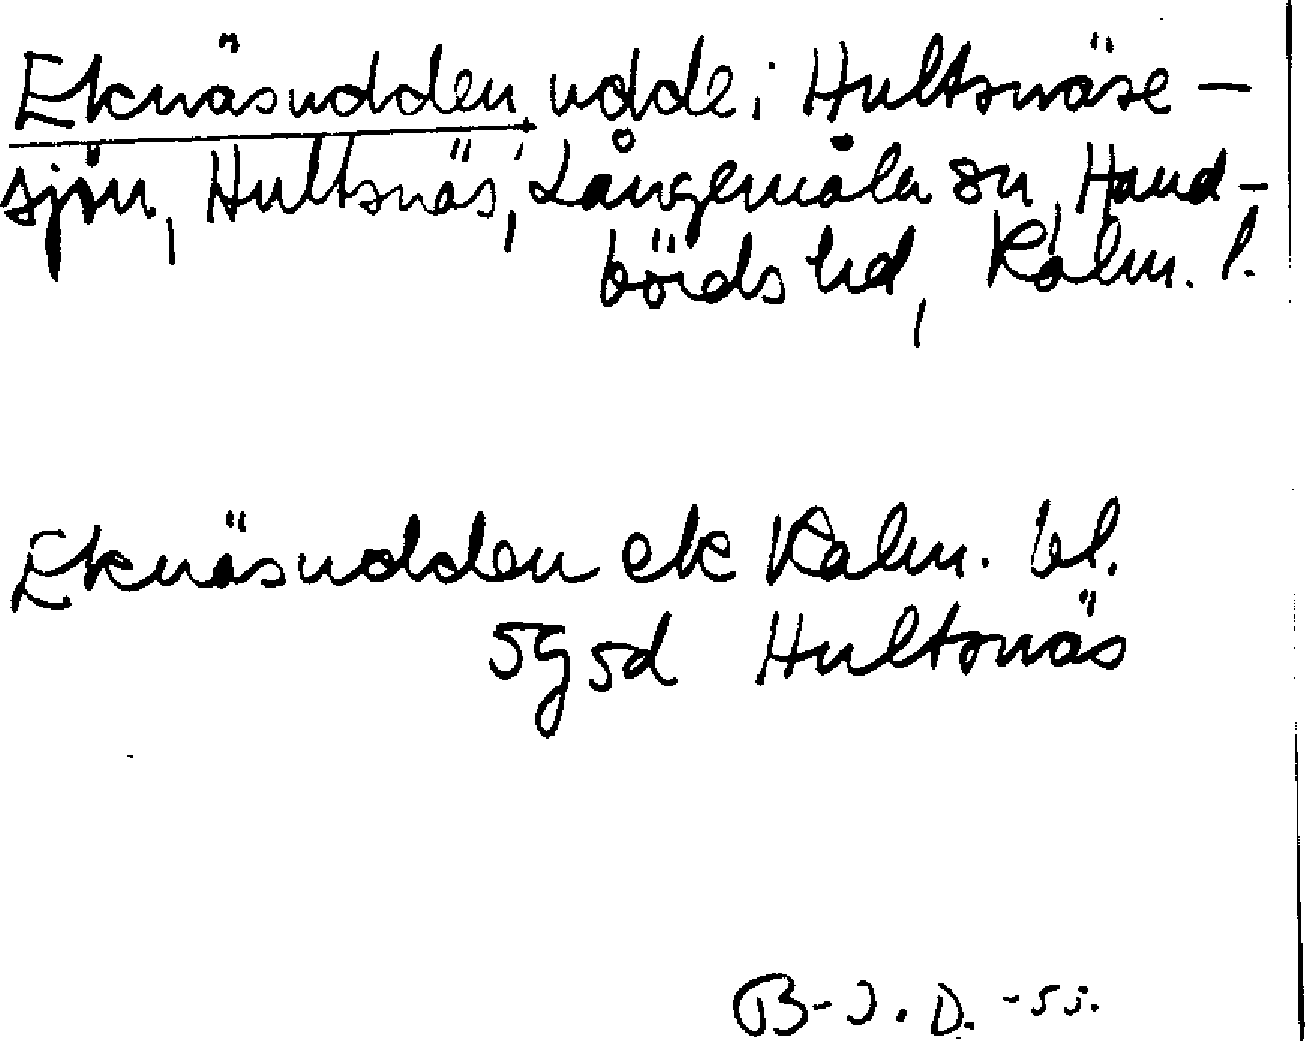 Eknäsudden, udde i Hultsnäse-
sjön, Hultsnäs, Långemåla sn, Hand-
börds hd, Kalm. l.
Eknäsudden ek Kalm. bl.
5g5d Hultsnäs
B-J. D. -55.